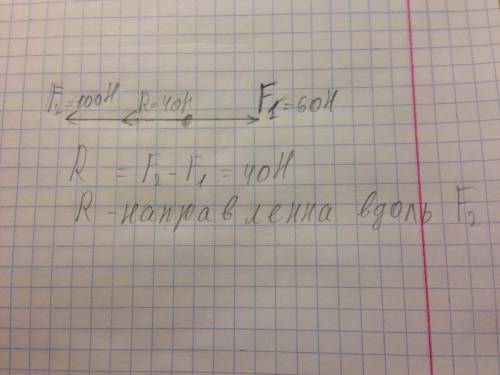 F₂=100Н R=40Н F₁=60Н
R = F₂-F₁ = 40Н
R -направленна вдоль F₂